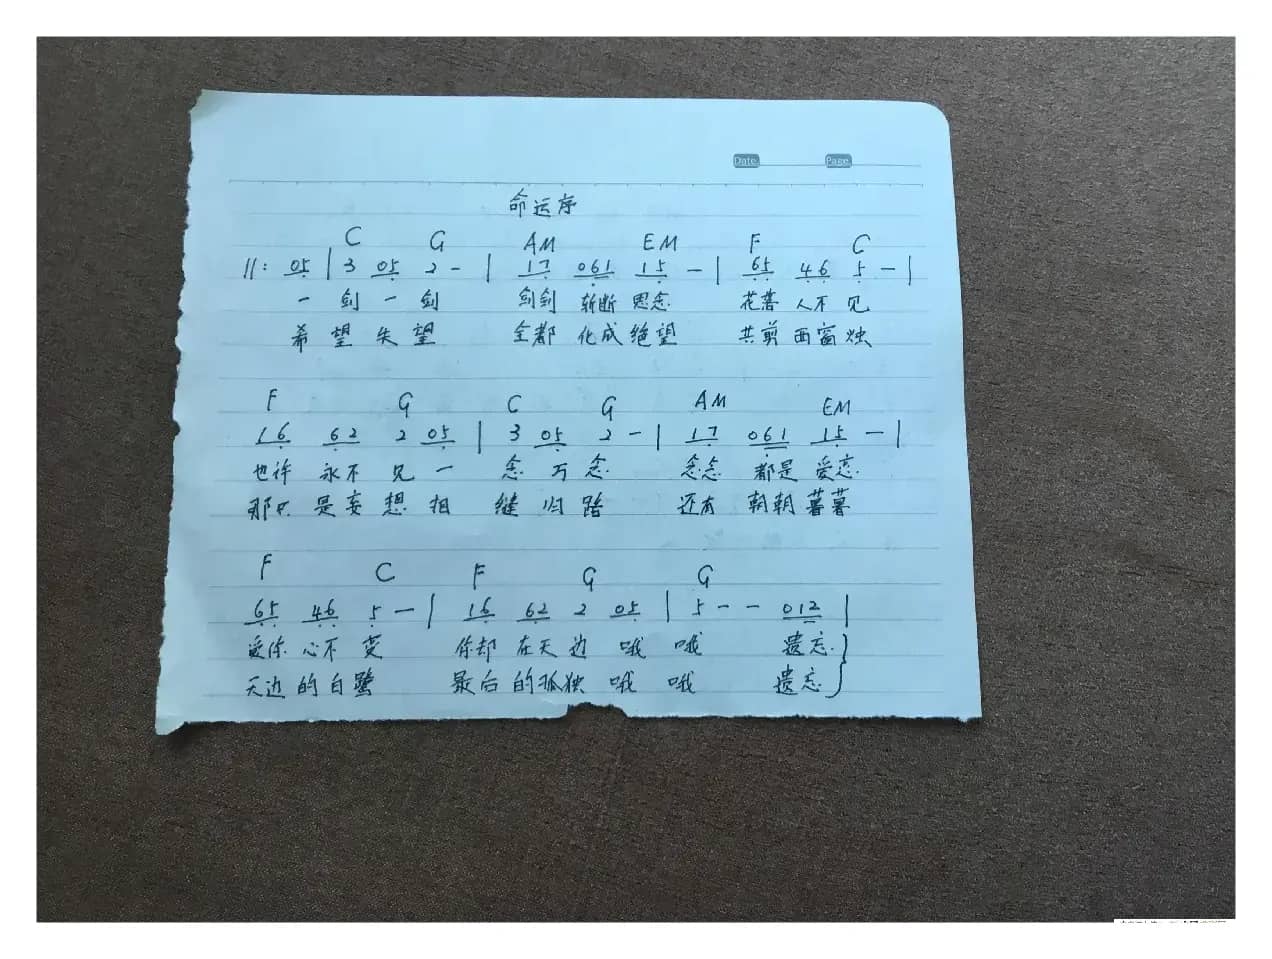 Date Page
命运序
C G AM EM F C
||: 05 | 3 05 2 - | 17 061 15 - | 65 46 5 - |
一 剑 一 剑 剑剑 斩断 思念 花落 人不 见
希 望 失 望 全都 化成 绝望 共剪 西窗 烛
F G C G AM EM
16 62 2 05 | 3 05 2 - | 17 061 15 - |
也许 永不 见 一 念 万 念 念念 都是 爱恋
那只 是妄 想 相 继 归 路 还有 朝朝 暮暮
F C F G G
65 46 5 - | 16 62 2 05 | 5 - - 012 |
爱你 心不 变 你却 在天 边 哦 哦 遗忘
天边 的白 鹭 最后 的孤独 哦 哦 遗忘